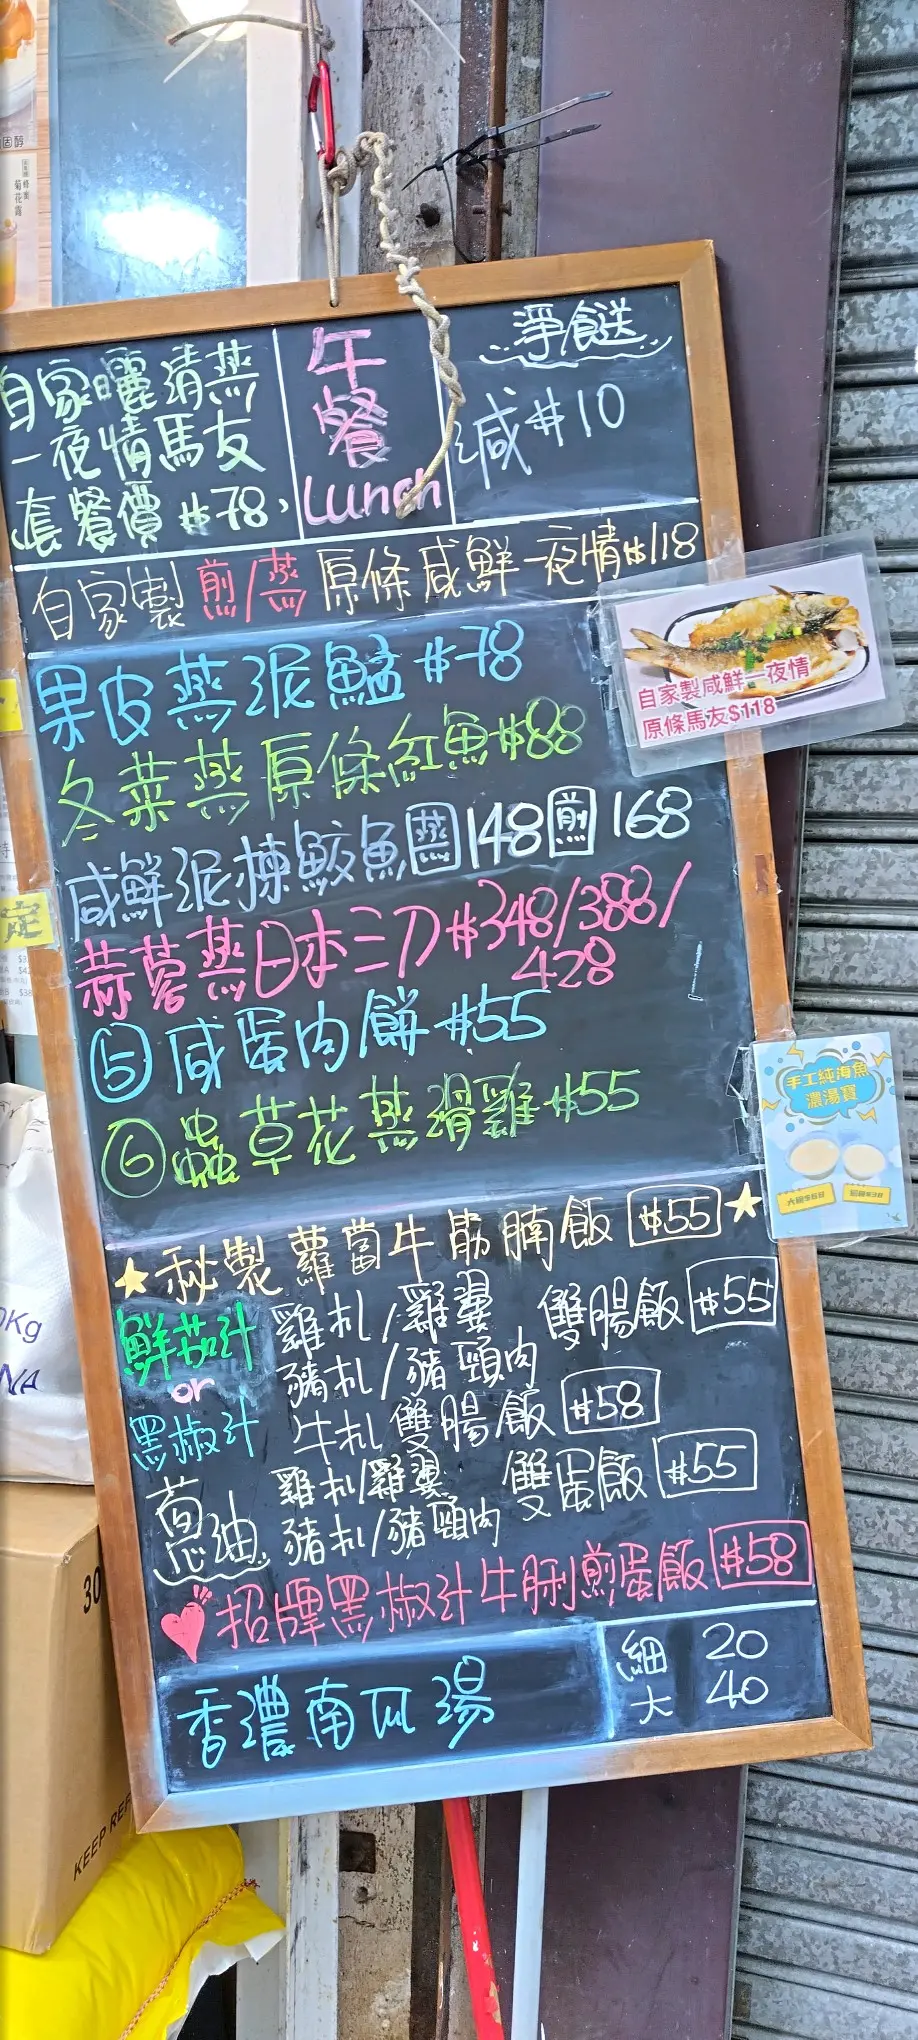 自家曬清蒸
一夜情馬友
套餐價 $78
午
餐
Lunch
淨餸
減 $10
自家製 煎/蒸 原條咸鮮一夜情$118
果皮蒸泥鯭 $78
冬菜蒸原條紅魚$88
咸鮮泥揀鮫魚 蒸 148 煎 168
蒜蓉蒸日本三刀 $348/388/
428
⑤ 咸蛋肉餅 $55
⑥ 蟲草花蒸滑雞 $55
★ 秘製蘿蔔牛筋腩飯 $55 ★
鮮茄汁
or
黑椒汁
雞扎/雞翼
豬扎/豬頸肉
雙腸飯 $55
牛扎雙腸飯 $58
蔥油
雞扎/雞翼
豬扎/豬頸肉
雙蛋飯 $55
招牌黑椒汁牛脷煎蛋飯 $58
香濃南瓜湯
細 20
大 40
自家製咸鮮一夜情
原條馬友$118
手工純海魚
濃湯寶
菊花露
定
KEEP